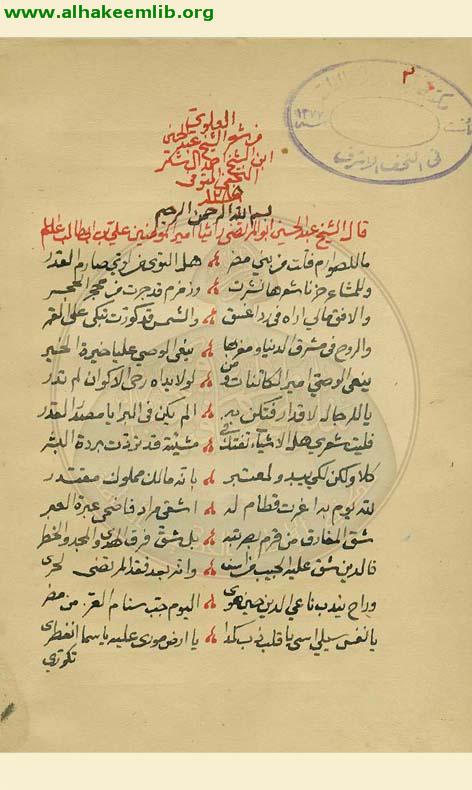 www.alhakeemlib.org
٣
١٣٧٧
في النجف الاشرف
العلويت
من شعر الشيخ عبد الحسين
ابن الشيخ احمد ال شكر
النجفي المتوفى
١٢٨٥
بسم الله الرحمن الرحيم
قال الشيخ عبد الحسين ابو المرتضى راثيا امير المومنين علي بن ابيطالب
ما للصوارم فلت من بني مضر هل التوى من لوي صارم القدر
وللمشاعر حزنا شعرها نشرت وزمزم قد جرت من محجر الحجر
والافق مالي اراه في ردا غسق والشمس قد كورت تبكي على القمر
والروح في مشرق الدنيا ومغربها ينعى الوصي عليا خيرة الخير
ينعى الوصي امير الكائنات ومن لولا يداه رحى الاكوان لم تدر
يا للرجال لاقدار فتكن به الم يكن في البرايا مصدر القدر
فليت شعري هل الاشياء تفتك في مشيئة قد تردت بردة البشر
كلا ولكن لكي يبدو لمعتبر بانه مالك مملوك مقتدر
لله يوم به اغرت قطام له اشقى مراد فاضحى عبرة العبر
شق المفارق من قرم بصربته بل شق فرق الهدى والمجد والخطر
فالدين شق عليه الجيب وانه بعد فقد المرتضى لحري
وراح يندب ناعي الدين حين هوى اليوم جب سنام العز من مضر
يا نفس سيلي اسى يا قلب ذب كمدا يا ارض موري عليه يا سما انفطري
تكوري